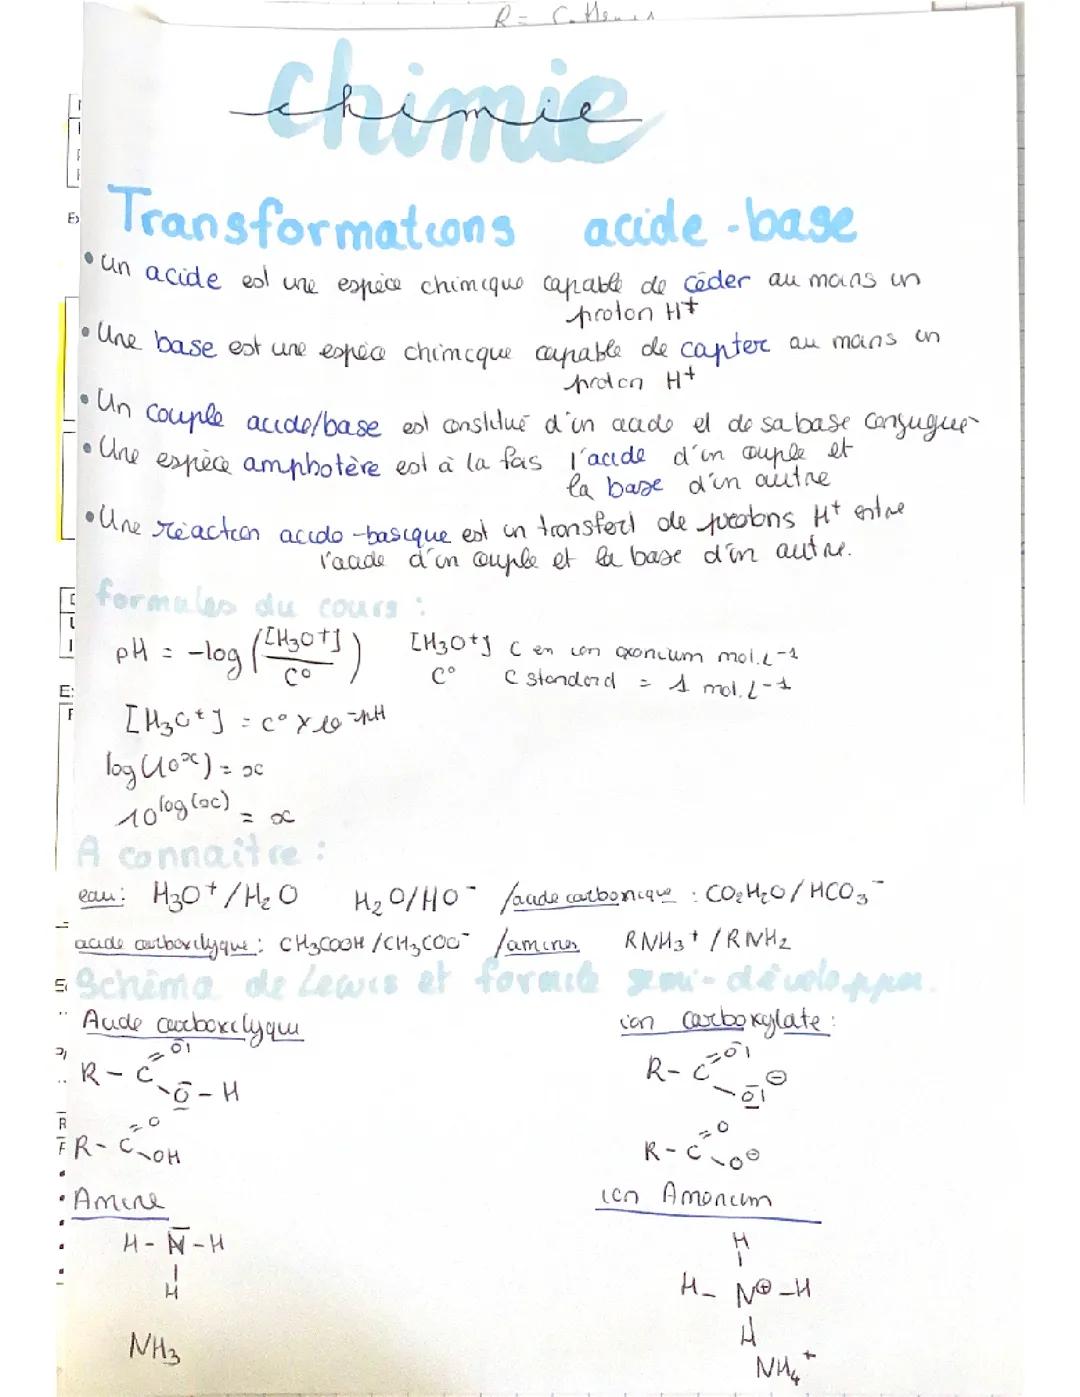 chimie
Transformations acide-base
• Un acide est une espèce chimique capable de céder au moins un
proton H+
• Une base est une espèce chimique capable de capter au moins un
proton H+
• Un couple acide/base est constitué d'un acide et de sa base conjuguée
• Une espèce amphotère est à la fois l'acide d'un couple et
la base d'un autre
• Une réaction acido-basique est un transfert de protons H+ entre
l'acide d'un couple et la base d'un autre.
formules du cours :
pH = -log ([H3O+] / C°) [H3O+] C en ion oxonium mol.L-1
C° C standard = 1 mol.L-1
[H3O+] = C° x 10-pH
log(10x) = x
10log(x) = x
A connaitre :
eau : H3O+/H2O H2O/HO- /acide carbonique : CO2H2O/HCO3-
acide carboxilyque : CH3COOH/CH3COO- /amines RNH3+/RNH2
Schéma de Lewis et formule semi-développer.
Acide carboxilyque ion carboxylate :
R-C O O-H R-C O O ⊖
R-C O OH R-C O O⊖
• Amine ion Amonium
H-N-H H
H H-N⊕-H
NH3 H
NH4+